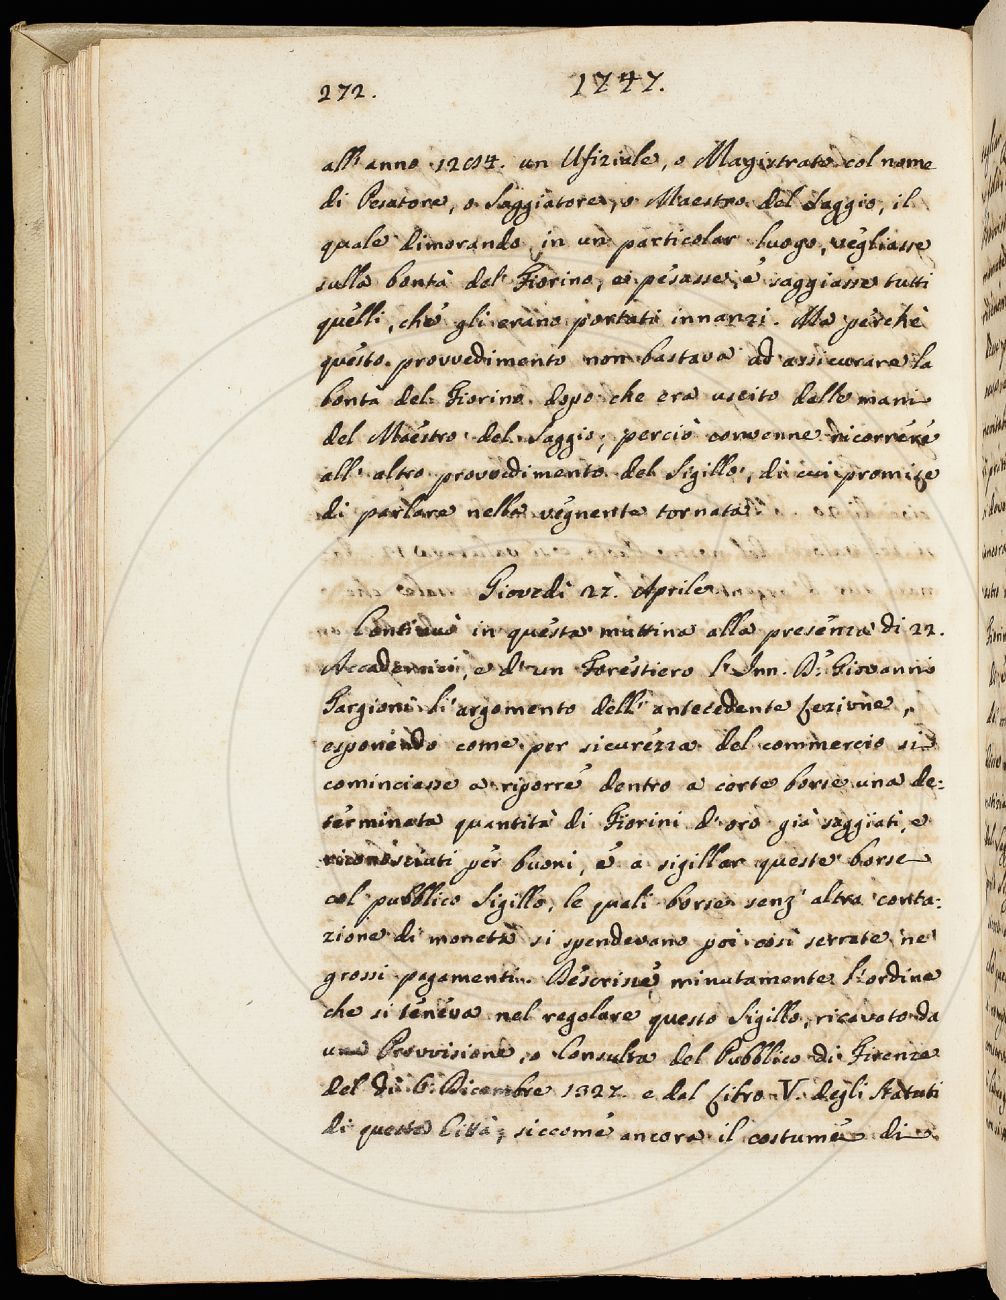 272.
1747.
all' anno 1294. un Ufiziale, o Magistrato col nome
di Pesatore, o Saggiatore, o Maestro del Saggio, il
quale dimorando in un particolar luogo, vegliasse
sulla bontà del Fiorino, e pesasse, e saggiasse tutti
quelli, che gli erano portati innanzi. Ma perchè
questo provvedimento non bastava ad assicurare la
bontà del Fiorino dopo che era uscito delle mani
del Maestro del Saggio, perciò convenne ricorrere
all' altro provvedimento del Sigillo, di cui promise
di parlare nella vegnente tornata.
Giovedì 27. Aprile
Continuò in questa mattina alla presenza di 22.
Accademici, e d' un Forestiero l' Inn. D.r Giovanni
Targioni l' argomento dell' antecedente Lezione,
esponendo come per sicurezza del commercio si
cominciasse a riporre dentro a certe borse una de=
terminata quantità di Fiorini d' oro già saggiati, e
riconosciuti per buoni, e a sigillar queste borse
col pubblico Sigillo, le quali borse senz' altra conta=
zione di moneta si spendevano poi così serrate ne'
grossi pagamenti. Descrisse minutamente l' ordine
che si teneva nel regolare questo Sigillo, ricavato da
una Provvisione, o Consulta del Pubblico di Firenze
del dì 6. Dicembre 1327. e dal Libro V. degli Statuti
di questa Città, siccome ancora il costume di